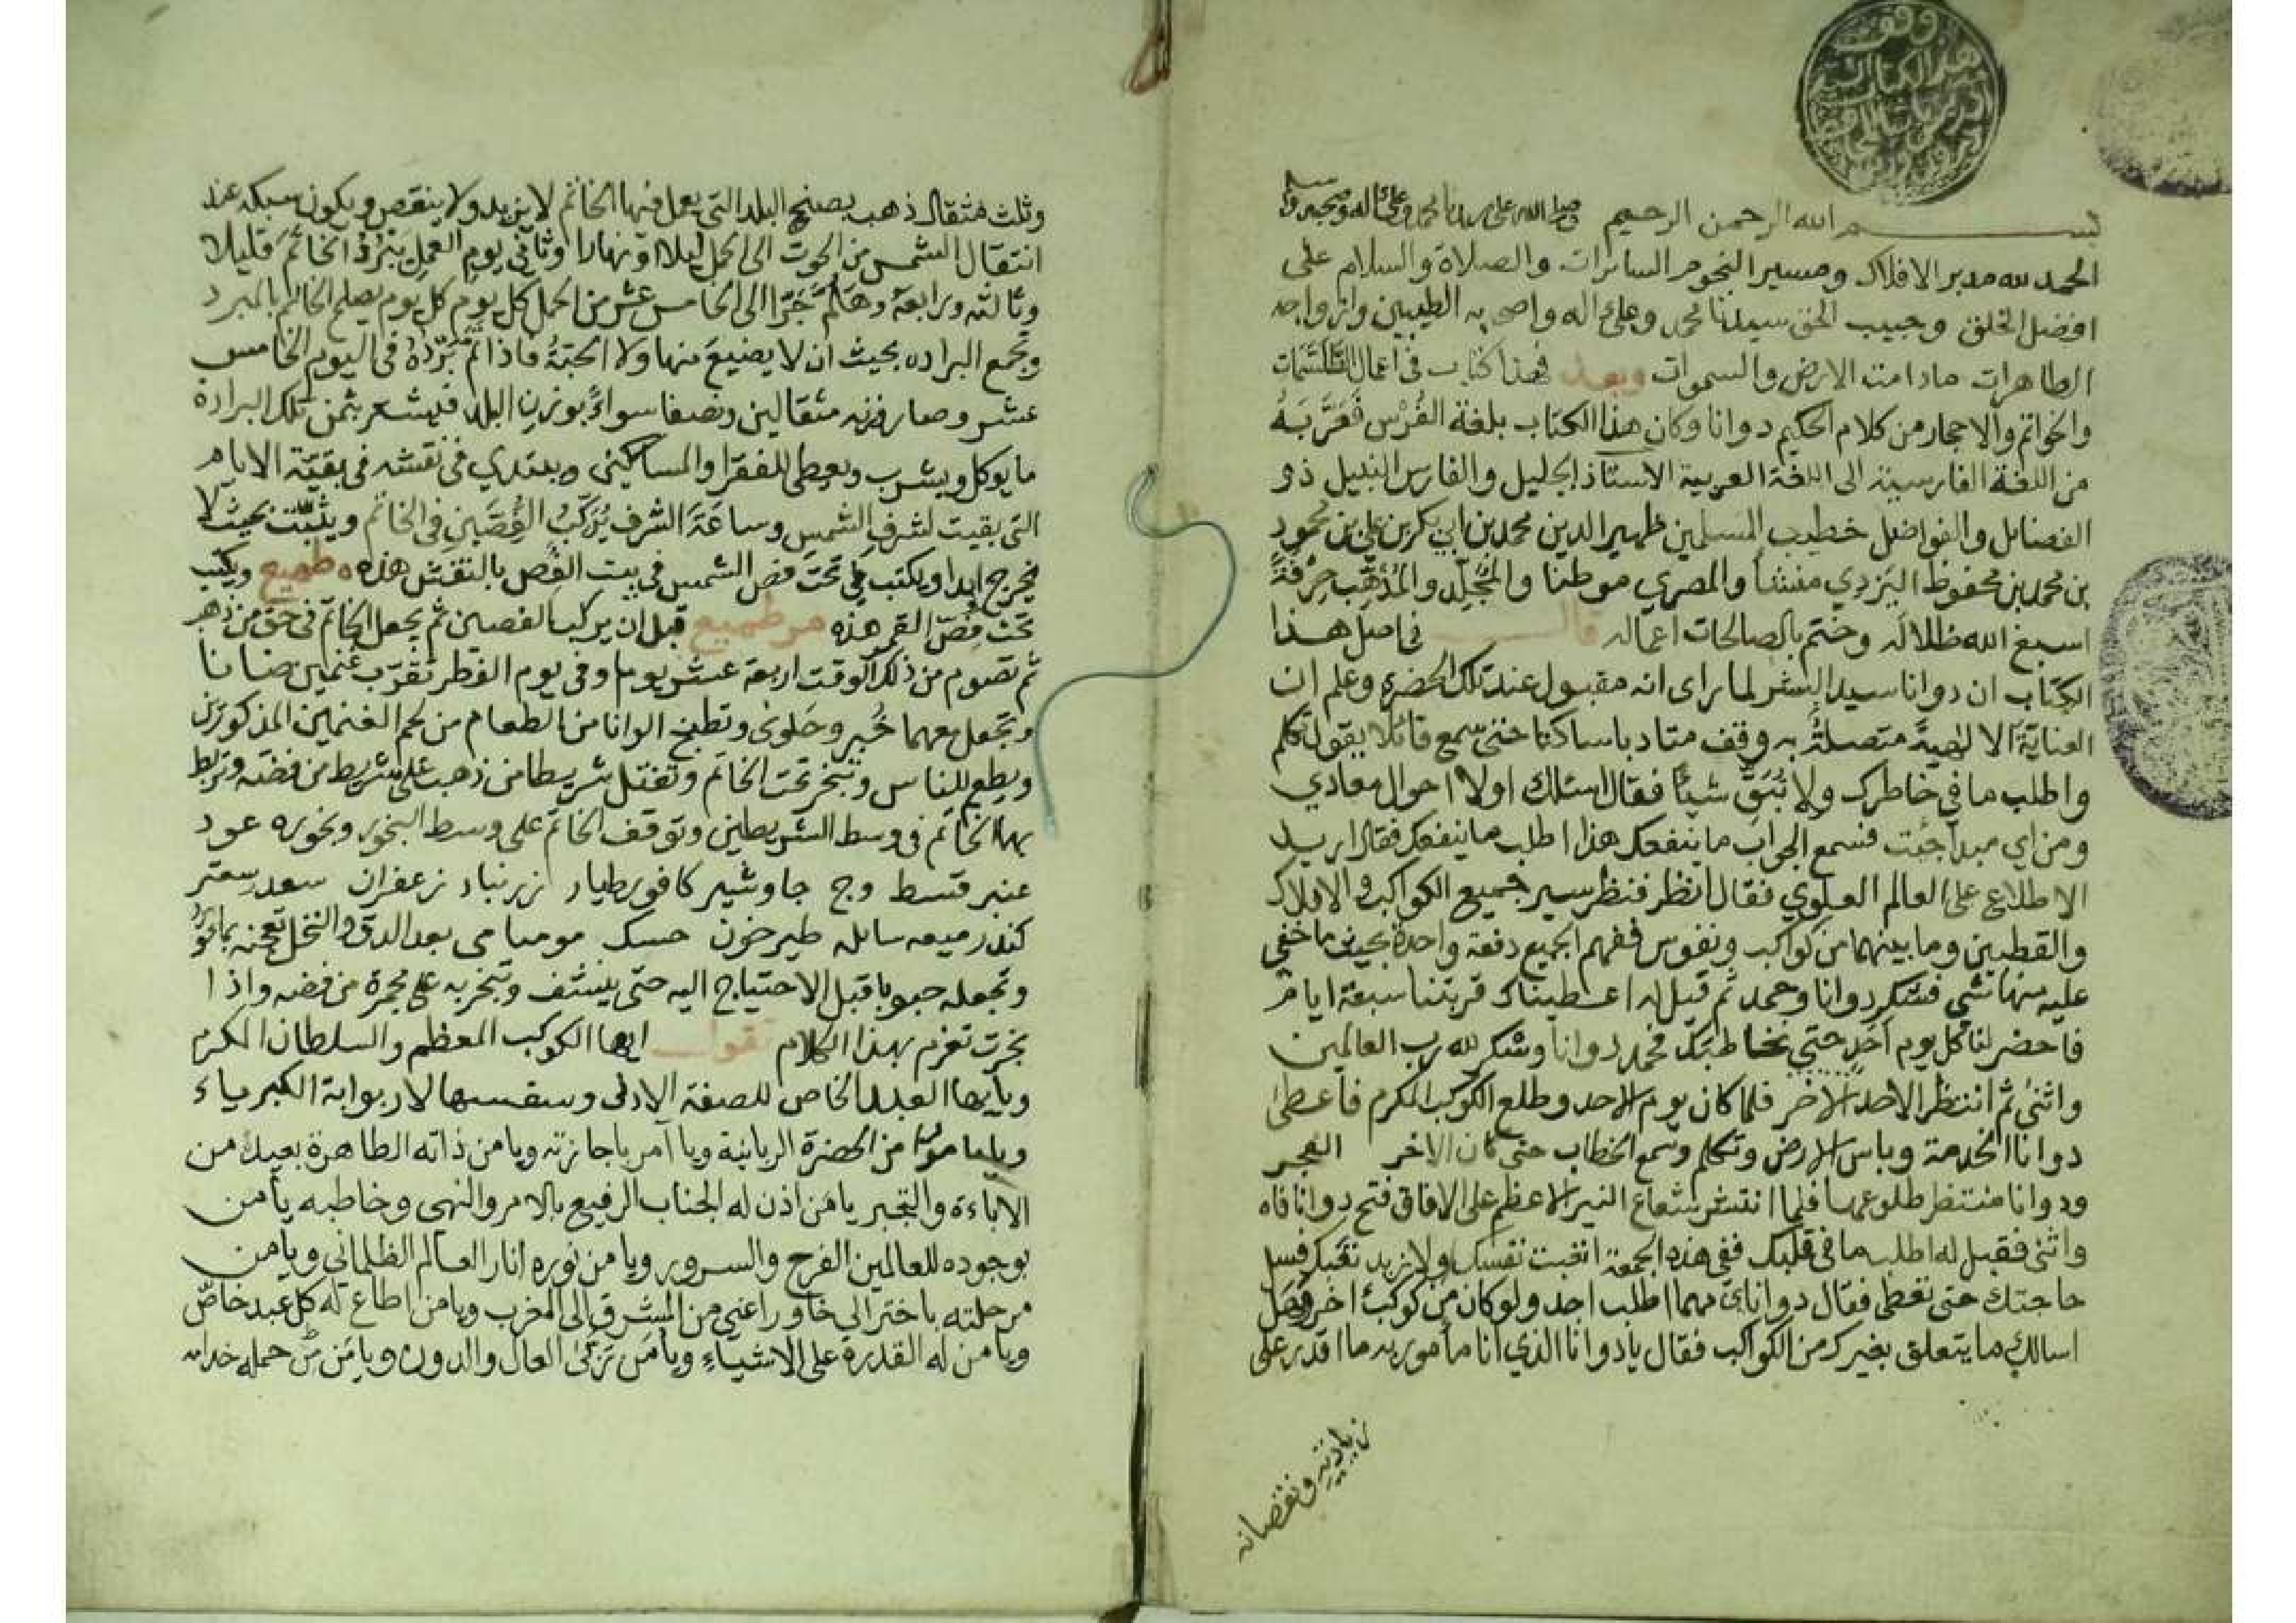 وقف
هذا الكتاب
بســم الله الرحمن الرحيم صلى الله على سيدنا محمد وعلى اله وصحبه وسلم
الحمد لله مدبر الافلاك ومسير النجوم السائرات والصلاة والسلام على
افضل الخلق وحبيب الحق سيدنا محمد وعلى اله واصحابه الطيبين وازواجه
الطاهرات مادامت الارض والسموات وبعد فهذا كتاب في اعمال الطلسمات
والخواتم والاحجار من كلام الحكيم دوانا وكان هذا الكتاب بلغة الفُرْس فعَرَّبَهُ
من اللغة الفارسية الى اللغة العربية الاستاذ الجليل والفارس النبيل ذو
الفضائل والفواضل خطيب المسلمين ظهير الدين محمد بن ابي بكر بن علي بن محمود
بن محمد بن محفوظ اليَزدي منشأ والمصري موطنا والمُجَلِّد والمُذَهِّب حِرْفةً
اسبغ الله ظلاله وختم بالصالحات اعماله قال في اصل هذا
الكتاب ان دوانا سيد البشر لما راى انه مقبول عند تلك الحضرة وعلم ان
العناية الالهية متصلة به وقف متادبا ساكتا حتى سمع قائلا يقول تكلم
واطلب ما في خاطرك ولا تُبَقِّ شيئا فقال اسئلك اولا احوال معادي
ومن اي مبدا جئت فسمع الجواب ما ينفعك هذا اطلب ما ينفعك فقال اريد
الاطلاع على العالم العلوي فقال انظر فنظر سير جميع الكواكب والافلاك
والقطبين وما بينهما من كواكب ونفوس ففهم الجميع دفعة واحدة بحيث ما خفي
عليه منها شي فشكر دوانا وحمد ثم قيل له اعطيناك قربتنا سبعة ايام
فاحضر لنا كل يوم احد حتى نخاطبك فحمد دوانا وشكر لله رب العالمين
واثنى ثم انتظر الاحد الاخر فلما كان يوم الاحد وطلع الكوكب المكرم فاعطى
دوانا الخدمة وباس الارض وتكلم وسمع الخطاب حتى كان الاخر الفجر
ودوانا منتظر طلوعها فلما انتشر شعاع النير الاعظم على الافاق فتح دوانا فاه
واثنى فقيل له اطلب ما في قلبك ففي هذه الجمعة اتعبت نفسك ولا نريد تعبك فسل
حاجتك حتى تعطى فقال دوانا مهما اطلب اجد ولو كان من كوكب اخر
اسالك ما يتعلق بغيرك من الكواكب فقال يا دوانا الذي انا مأمور به ما اقدر على
زيادته ونقصانه
وثلث مثقال ذهب بصنج البلد التي يعمل فيها الخاتم لا يزيد ولا ينقص ويكون سبكه عند
انتقال الشمس من الحوت الى الحمل ليلا او نهارا وثاني يوم العمل يَبْرُدُ الخاتم قليلا
وثالثه ورابعه وهَلُمَّ جَرّا الى الخامس عشر من الحمل كل يوم كل يوم يصلح الخاتم بالمبرد
وتجمع البرادة بحيث ان لا يضيع منها ولا الحبةُ فاذا تم بَرْدُهُ في اليوم الخامس
عشر وصار وزنه مثقالين ونصفا سواءً بوزن البلد فليشتر بثمن تلك البرادة
ما يوكل ويشرب ويعطي للفقرا والمساكين ويبتدي في نقشه في بقية الايام
التي بقيت لشرف الشمس وساعة الشرف يُركبُ الفصين في الخاتم ويثبت بحيث لا
يخرج ابدا ويكتب تحت فص الشمس في بيت الفص بالنقش هذه طهيع ويكتب
تحت فصّ القمر هذه قبل ان يركب الفصين ثم يجعل الخاتم في حق من ذهب
ثم تصوم من ذلك الوقت اربعة عشر يوما وفي يوم الفطر تقرب غنمين ضانا
وتجعل معهما خُبز وحَلوى وتطبخ الوانا من الطعام من لحم الغنمين المذكورين
ويطعم للناس وتبخر تحت الخاتم وتفتل شريطا من ذهب على شريط من فضة وتربط
بها الخاتم في وسط الشريطين وتوقف الخاتم على وسط البخور وبخوره عود
عنبر قسط وج جاوشير كافور طيار زرنباد زعفران سعد سعتر
كندر ميعه سائله طبرخون حسك موميا مي بعد الدق والنخل تعجنه بماورد
وتجعله حبوبا قبل الاحتياج اليه حتى ينشف وتبخر به على مجمرة من فضه واذا
بخرت تعزم بهذا الكلام تقول ايها الكوكب المعظم والسلطان المكرم
ويايها العبد الخاص للصفة الاولى الكبرياء
من الحضرة الربانية ويا آمر باجازته ويا من ذاته الطاهرة بعيدة من
يا من اذن له الجناب الرفيع بالامر والنهي وخاطبه يا من
بوجوده للعالمين الفرح والسرور ويا من نوره انار العالم الظلماني ويا من
مرحلته باختر الى خاور اعني من المشرق الى المغرب ويا من اطاع له كل عبد خاصّ
ويا من له القدرة على الاشياء ويا من العال والدون ويا من جمله خدامه